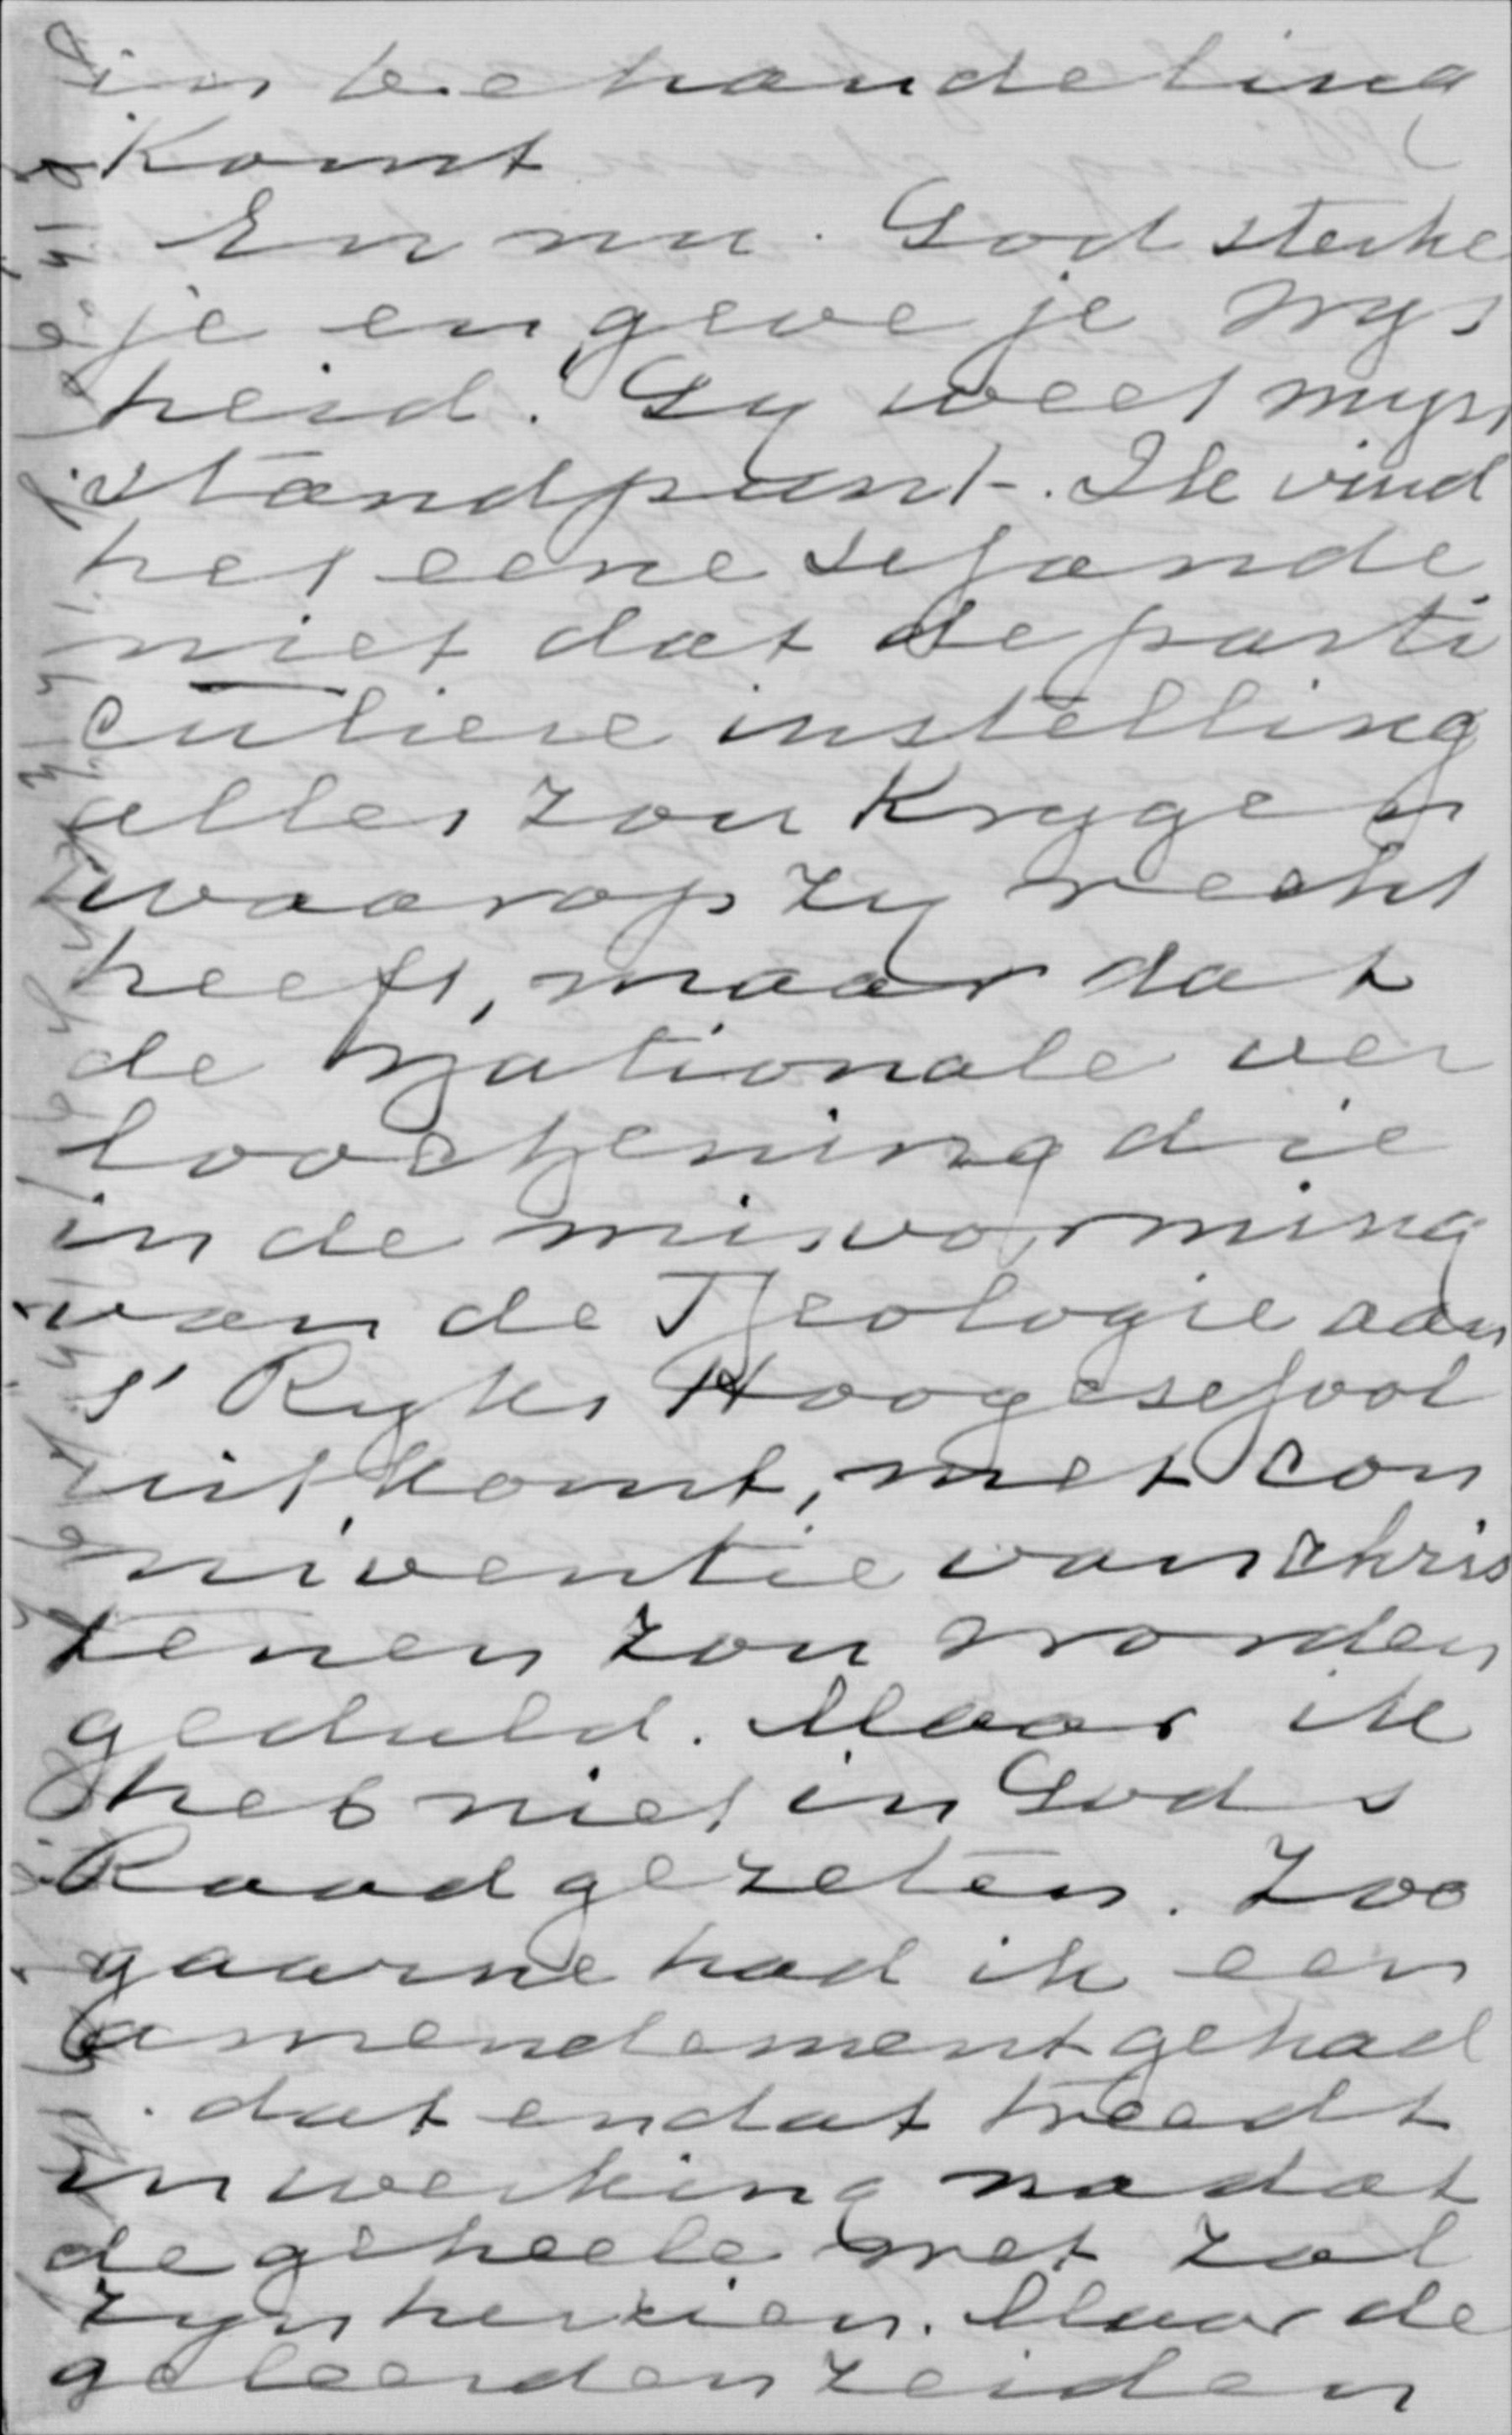 in behandeling
komt
En nu. God sterke
je en geve je wys
heid. Gy weet myn
standpunt. Ik vind
het eene schande
niet dat de parti
culiere instelling
alles zou krygen
waarop zy recht
heeft, maar dat
de Nationale ver
loochening die
in de misvorming
van de Theologie aan
s' Ryks Hoogeschool
uitkomt, met con
niventie van Chris
tenen zou worden
geduld. Maar ik
heb niet in Gods
Raad gezeten. Zoo
gaarne had ik een
amendement gehad
. dat en dat treedt
in werking nadat
de geheele wet zal
zyn herzien. Maar de
geleerden zeiden